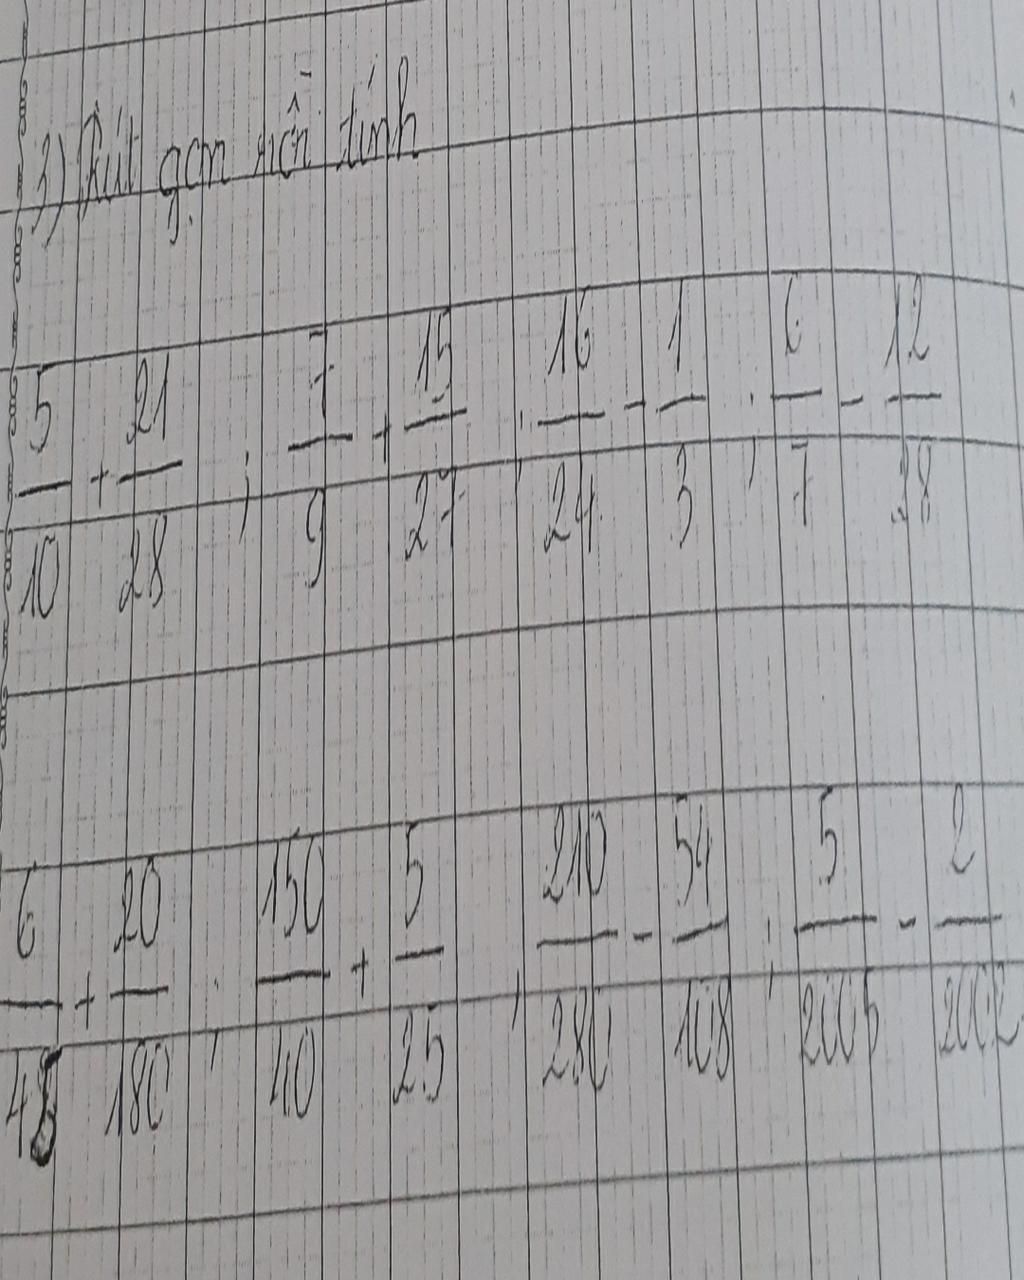 3) Rút gọn rồi tính
5/10 + 21/28 ; 7/9 + 15/27 ; 16/24 - 1/3 ; 6/7 - 12/28
6/48 + 20/180 ; 150/40 + 5/25 ; 210/280 - 54/108 ; 5/2005 - 2/2002